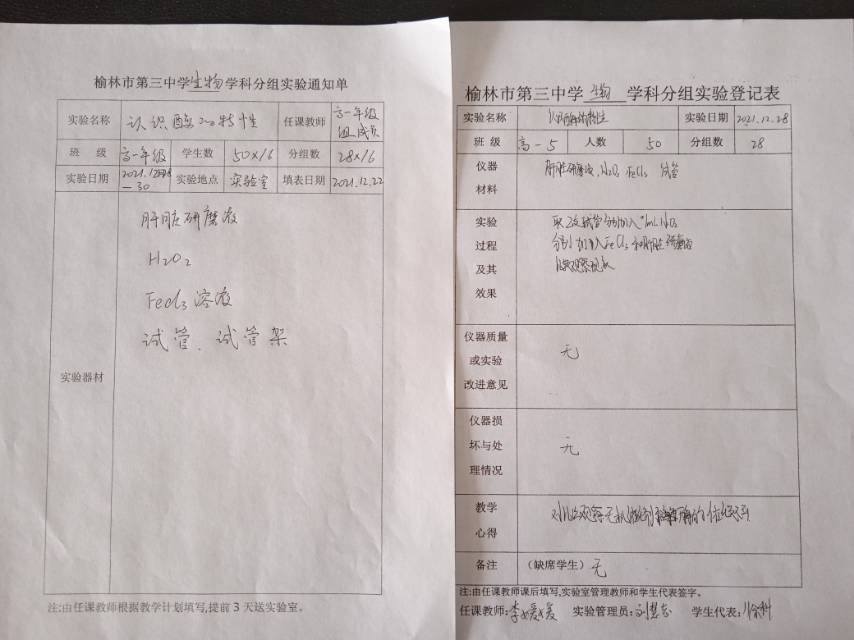 榆林市第三中学生物学科分组实验通知单
实验名称 认识酶的特性 任课教师 高一年级组成员
班 级 高一年级 学生数 50×16 分组数 28×16
实验日期 2021.12.28—30 实验地点 实验室 填表日期 2021.12.22
实验器材
肝脏研磨液
H2O2
FeCl3溶液
试管、试管架
注:由任课教师根据教学计划填写,提前3天送实验室。
榆林市第三中学生物学科分组实验登记表
实验名称 实验日期 2021.12.28
班 级 高一5 人数 50 分组数 28
仪器
材料
肝脏研磨液、H2O2 FeCl3 试管
实验
过程
及其
效果
取2支试管分别加入 H2O2
分别加入FeCl3和肝脏研磨液
观察现象
仪器质量
或实验
改进意见
无
仪器损
坏与处
理情况
无
教学
心得
备注 (缺席学生) 无
注:由任课教师课后填写,实验室管理教师和学生代表签字。
任课教师: 实验管理员: 学生代表: